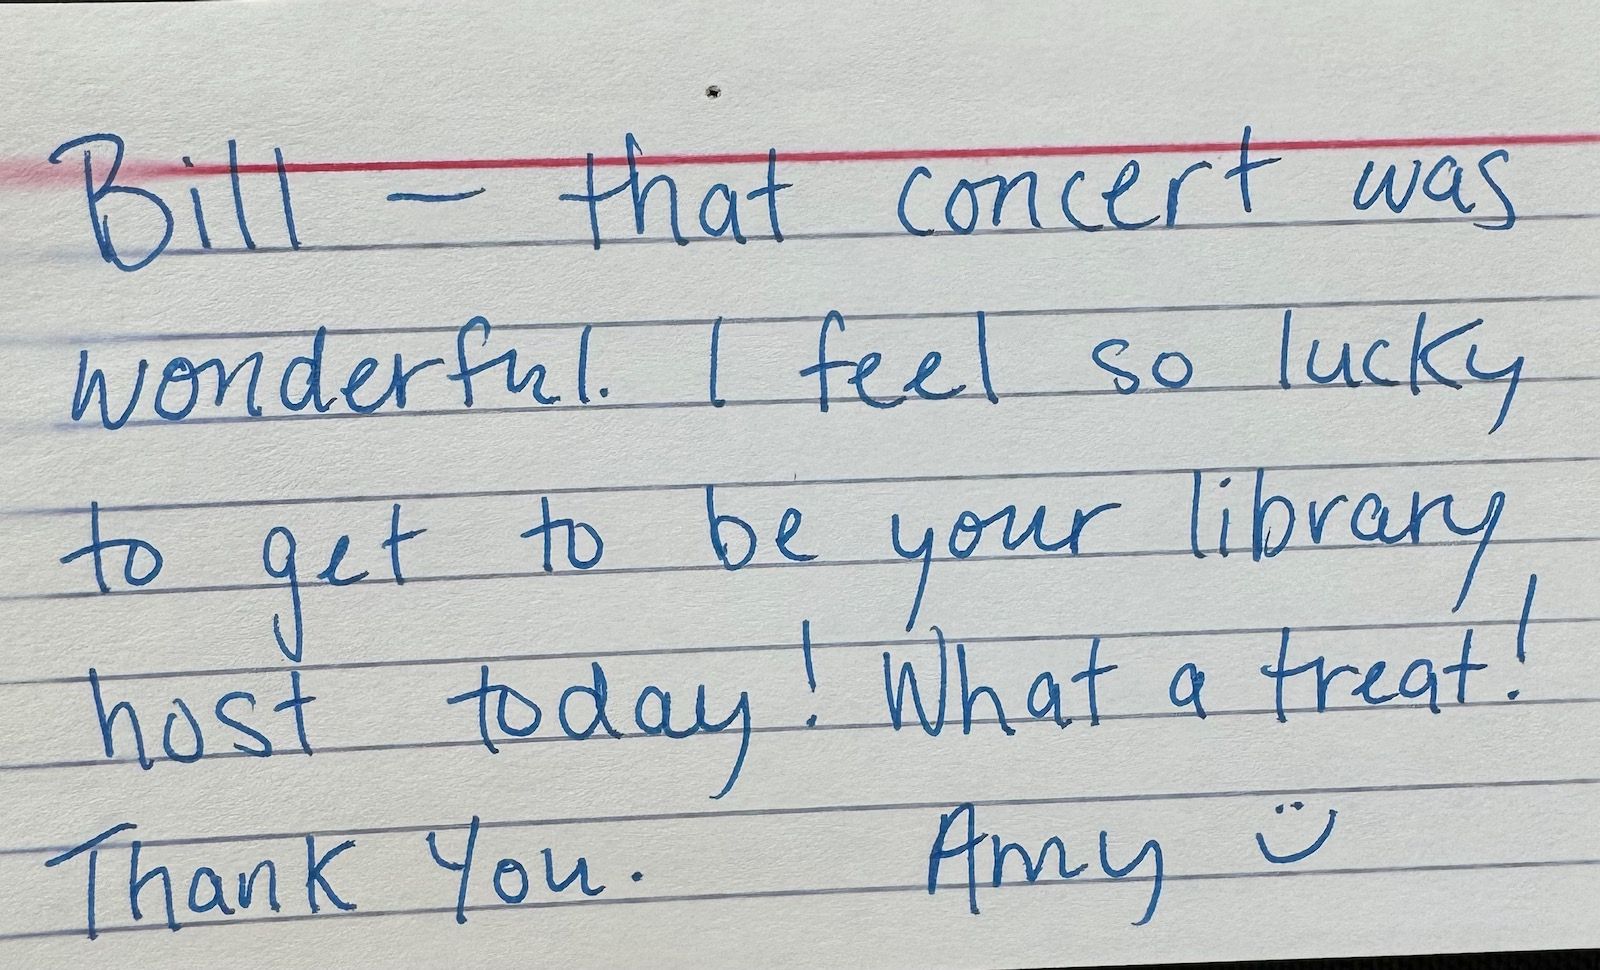 Bill – that concert was
wonderful. I feel so lucky
to get to be your library
host today! What a treat!
Thank You. Amy :)